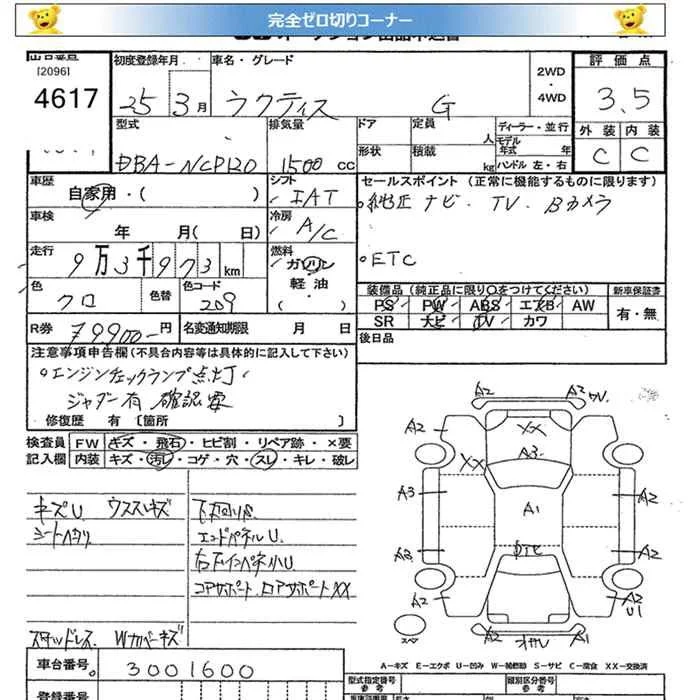 完全ゼロ切りコーナー
[2096]
4617
初度登録年月
25年 3月
車名・グレード
ラクティス G
2WD
・
4WD
評価点
3.5
外装 内装
C C
型式
DBA-NCP120
排気量
1500 cc
ドア
形状
定員 人
積載 kg
ディーラー・並行
モデル年式 年
ハンドル 左・右
車歴
自家用・( )
シフト
IAT
車検
年 月( 日)
冷房
A/C
走行
9万3千973km
燃料
ガソリン
軽油
色
クロ
色替
色コード
209
R券 ¥9900-円
名変通知期限 月 日
セールスポイント (正常に機能するものに限ります)
純正 ナビ. TV. Bカメラ
ETC
装備品 (純正品に限り○をつけてください)
PS PW ABS エアB AW
SR ナビ TV カワ
新車保証書
有・無
後日品
注意事項申告欄(不具合内容等は具体的に記入して下さい)
エンジンチェックランプ点灯
ジャダー有 確認要
修復歴 有 [箇所 ]
検査員 FW キズ・飛石・ヒビ割・リペア跡・×要
記入欄 内装 キズ・汚レ・コゲ・穴・スレ・キレ・破レ
キズU ウススレキズ
シートヘタリ
下回りサビ
エンドパネルU.
右下インパネ小U
コアサポート. ロアサポートXX
スタッドレス. Wカバーキズ
A2 A2 ワレ
A2 XX A2
XX A3
A3 A1 A2
A3 A2
A2 A2 U1
スペ
A2 オサレ A1
A-キズ E-エクボ U-凹み W-補修跡 S-サビ C-腐食 XX-交換済
車台番号 3001600
登録番号
型式指定番号
参考
類別区分番号
参考